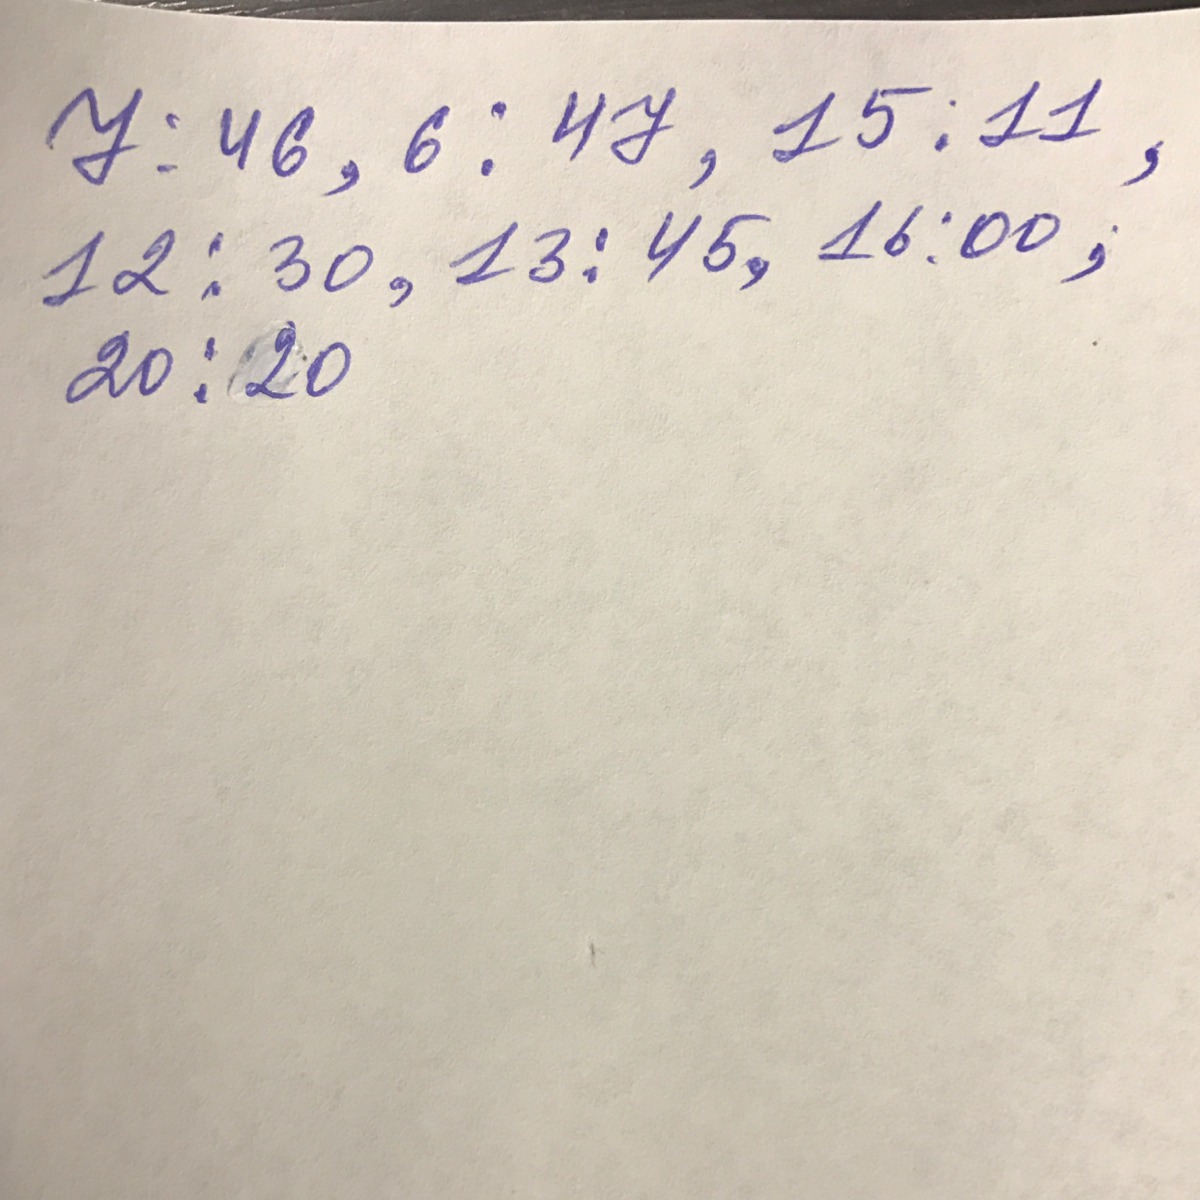 7:46, 6:47, 15:11,
12:30, 13:45, 16:00;
20:20